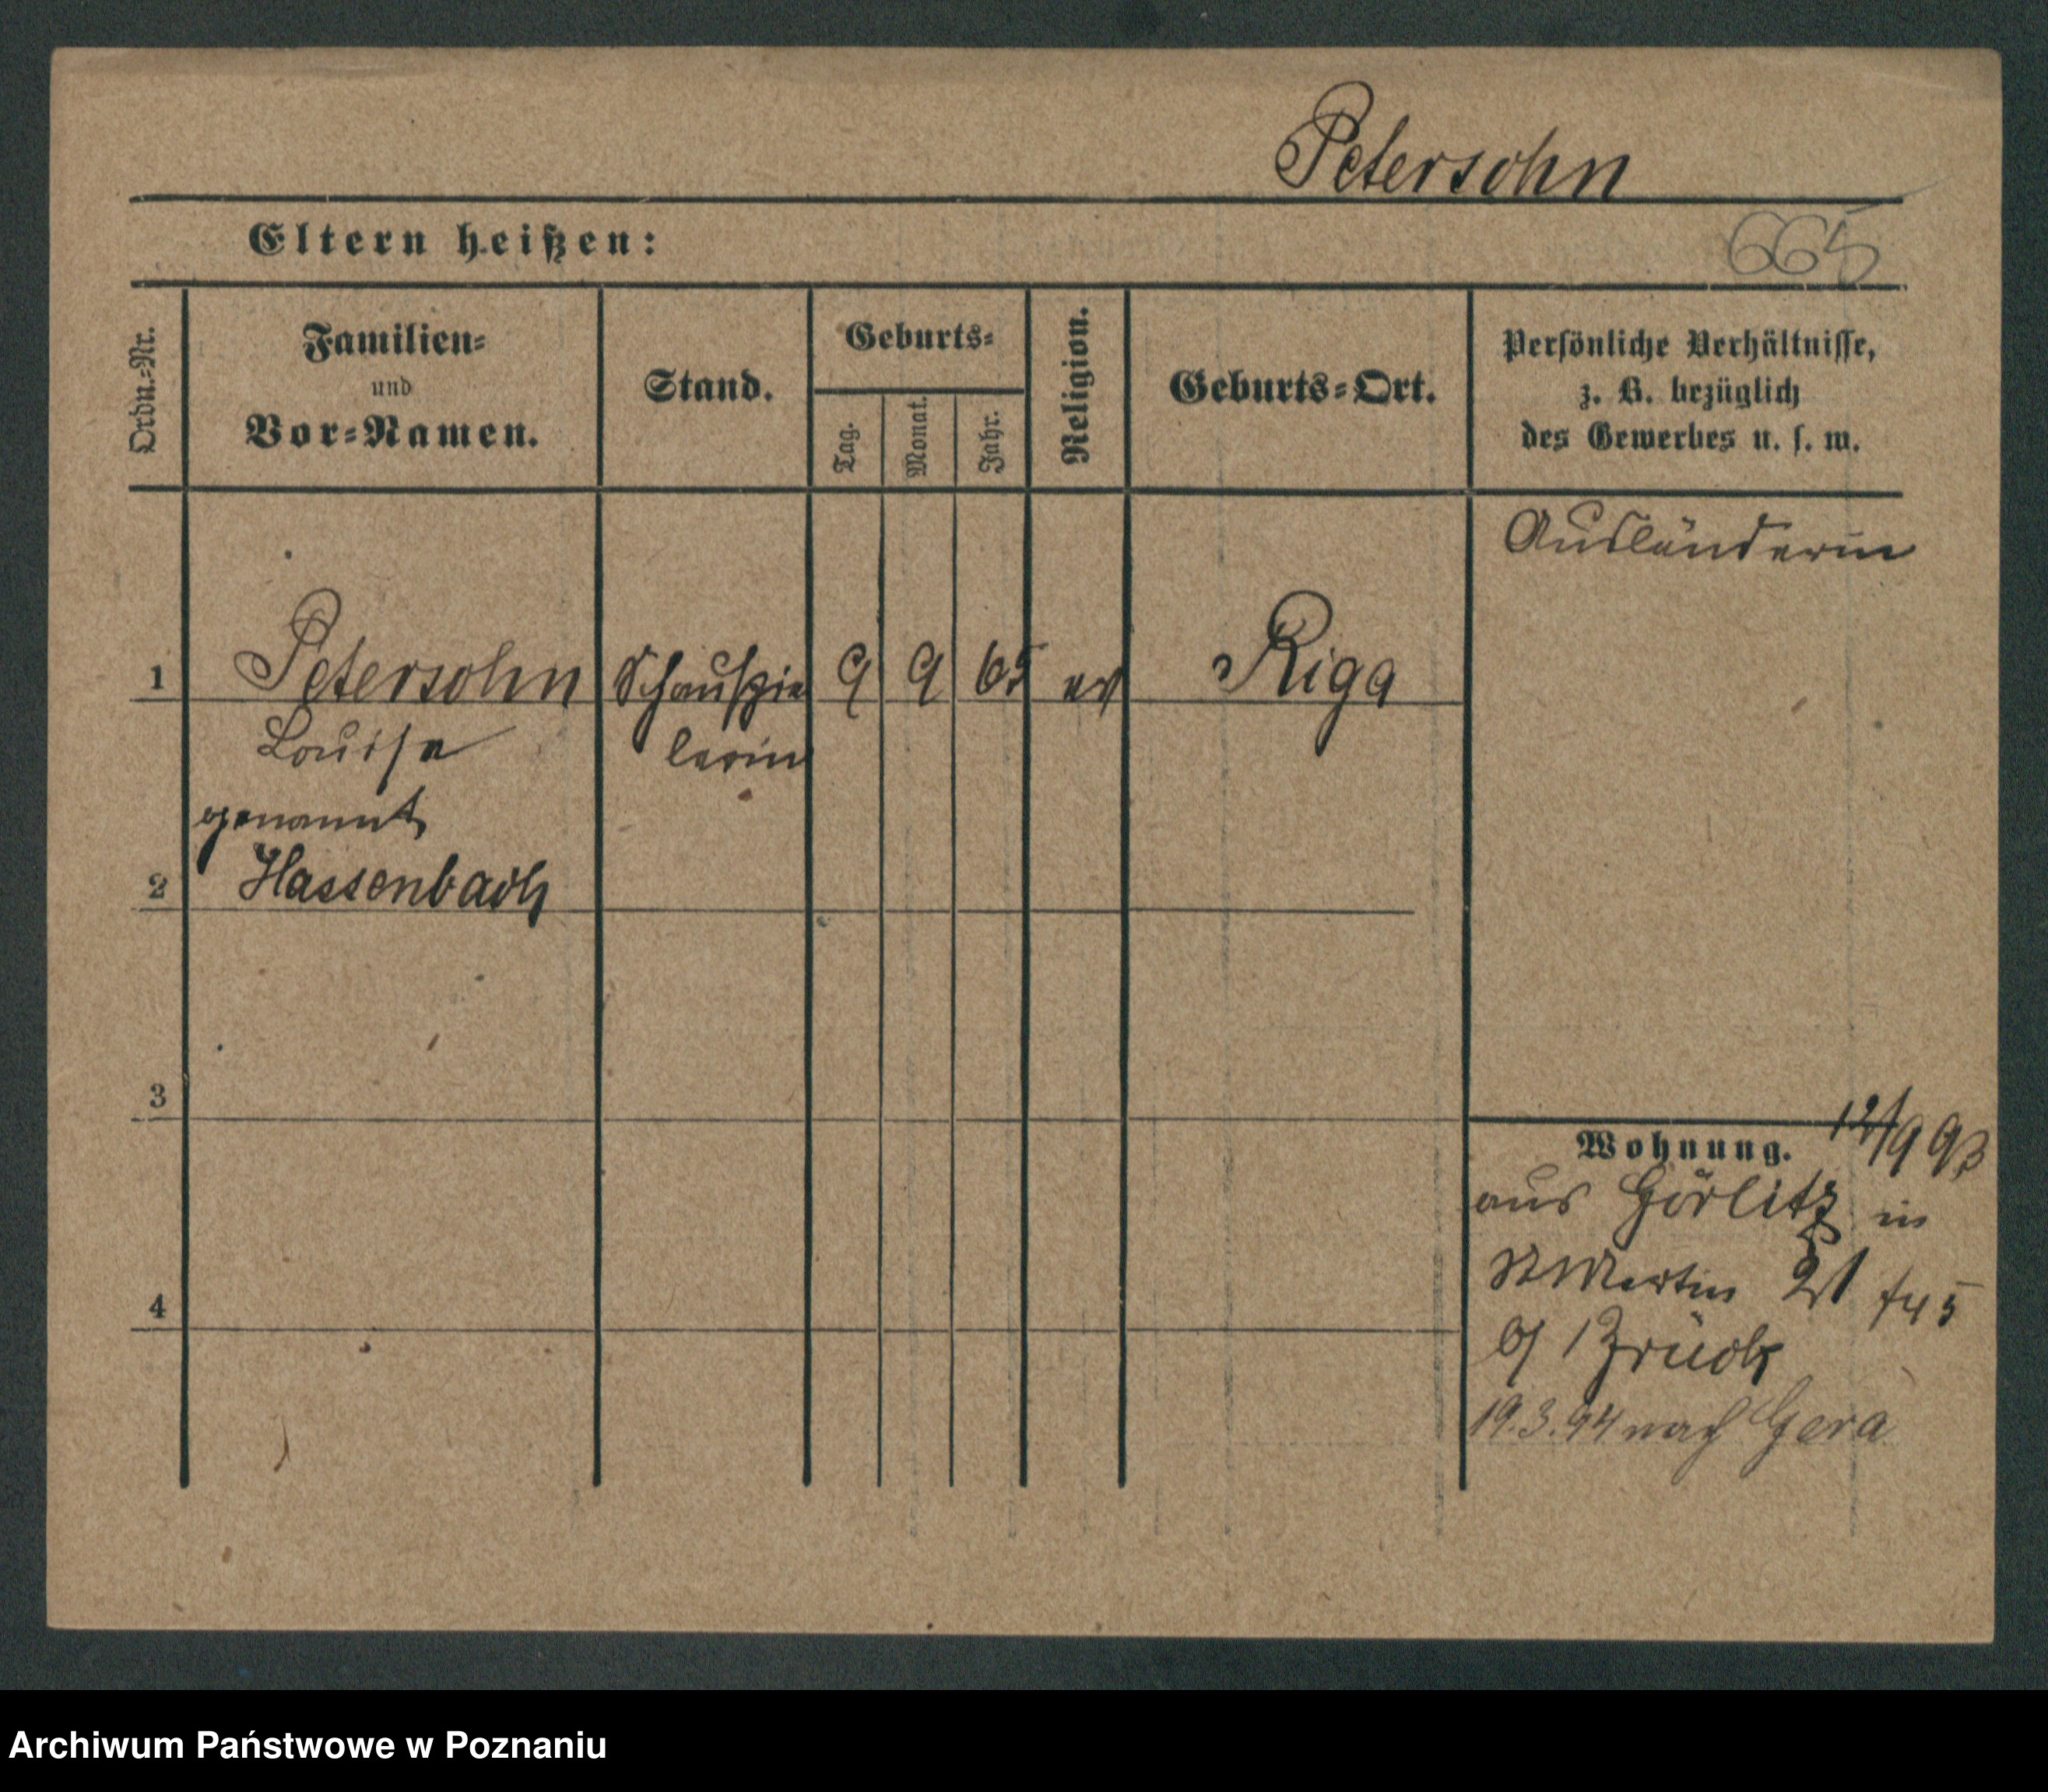 Petersohn
Eltern heißen:
665
Ordn.-Nr.
Familien-
und
Vor-Namen.
Stand.
Geburts-
Tag.
Monat.
Jahr.
Religion.
Geburts-Ort.
Persönliche Verhältnisse,
z. B. bezüglich
des Gewerbes u. s. w.
Ausländerin
1 Petersohn Schauspie 9 9 65 ev Riga
Louise lerin
genannt
2 Hassenbach
3
4
Wohnung. 12/9 93
aus Görlitz in
St Martin 21
b/
19.3.94 nach Gera
Archiwum Państwowe w Poznaniu